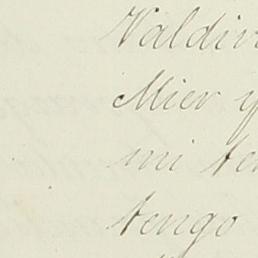 Valdiv
Mier y
mi te
tengo